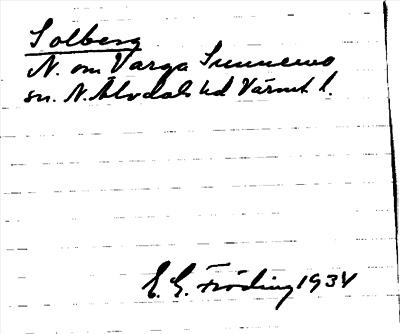 Solberg
N. om Varga Sunnemo
sn. N. Älvdals hd Värml l.
E. G. Fröding 1934